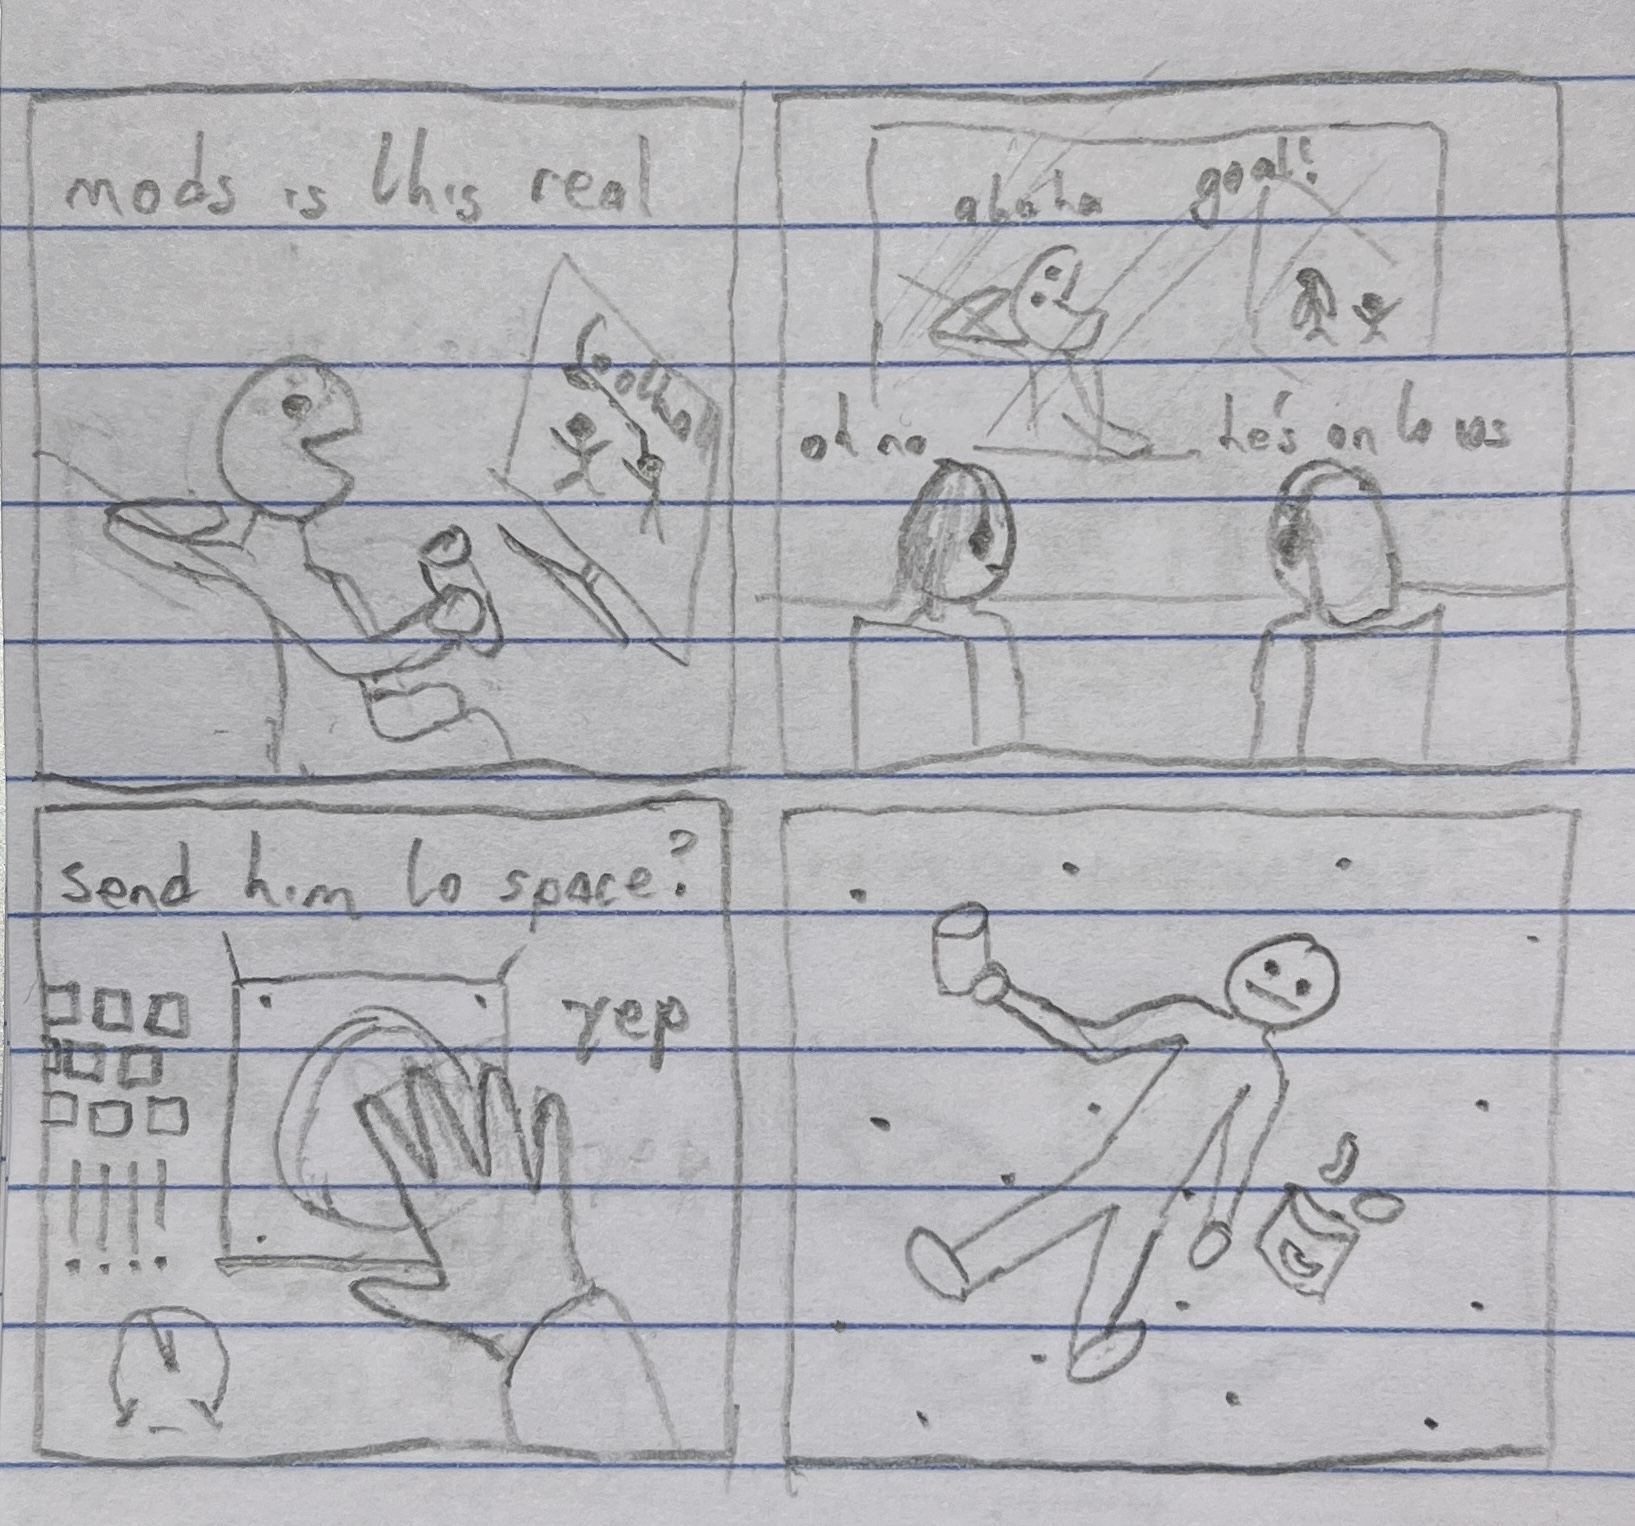 mods is this real
football
ahaha
goal!
oh no
he's on to us
send him to space?
yep